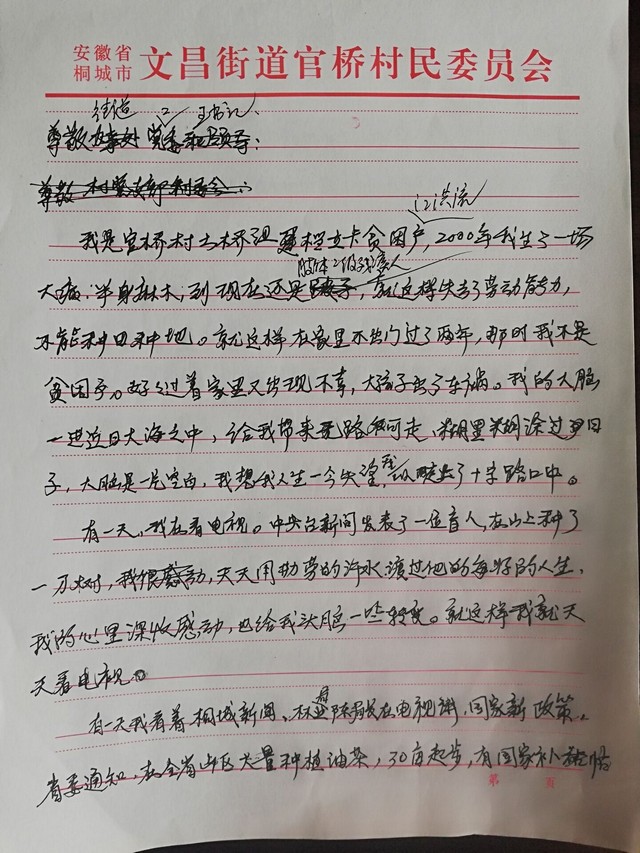 安徽省
桐城市 文昌街道官桥村民委员会
街道 王书记
尊敬
尊敬
江洪流
我是官桥村土桥组建档立卡贫困户,2000年我生了一场
肢体2级残疾人
大病,半身麻木,到现在还是 就这样失去了劳动能力,
不能种田种地。就这样在家里不出门过了两年,那时我不是
贫困户。好好过着家里又出现不幸,大孩子出了车祸。我的大脑
一进近日大海之中,给我带来无路可走,糊里糊涂过日
子,大脑是一片空白,我想我人生一个失望,我 了十字路口中。
有一天,我在看电视。中央台新闻发表了一位盲人,在山上种了
一万树,我很感动,天天用勤劳的汗水渡过他的每好的人生,
我的心里深收感动,也给我头脑一些转变。就这样我就天
天看电视。
有一天我看着桐城新闻、林业 在电视讲,国家新政策,
省委通知,在全省山区大量种植油茶,30亩起步,有国家补贴
第 页